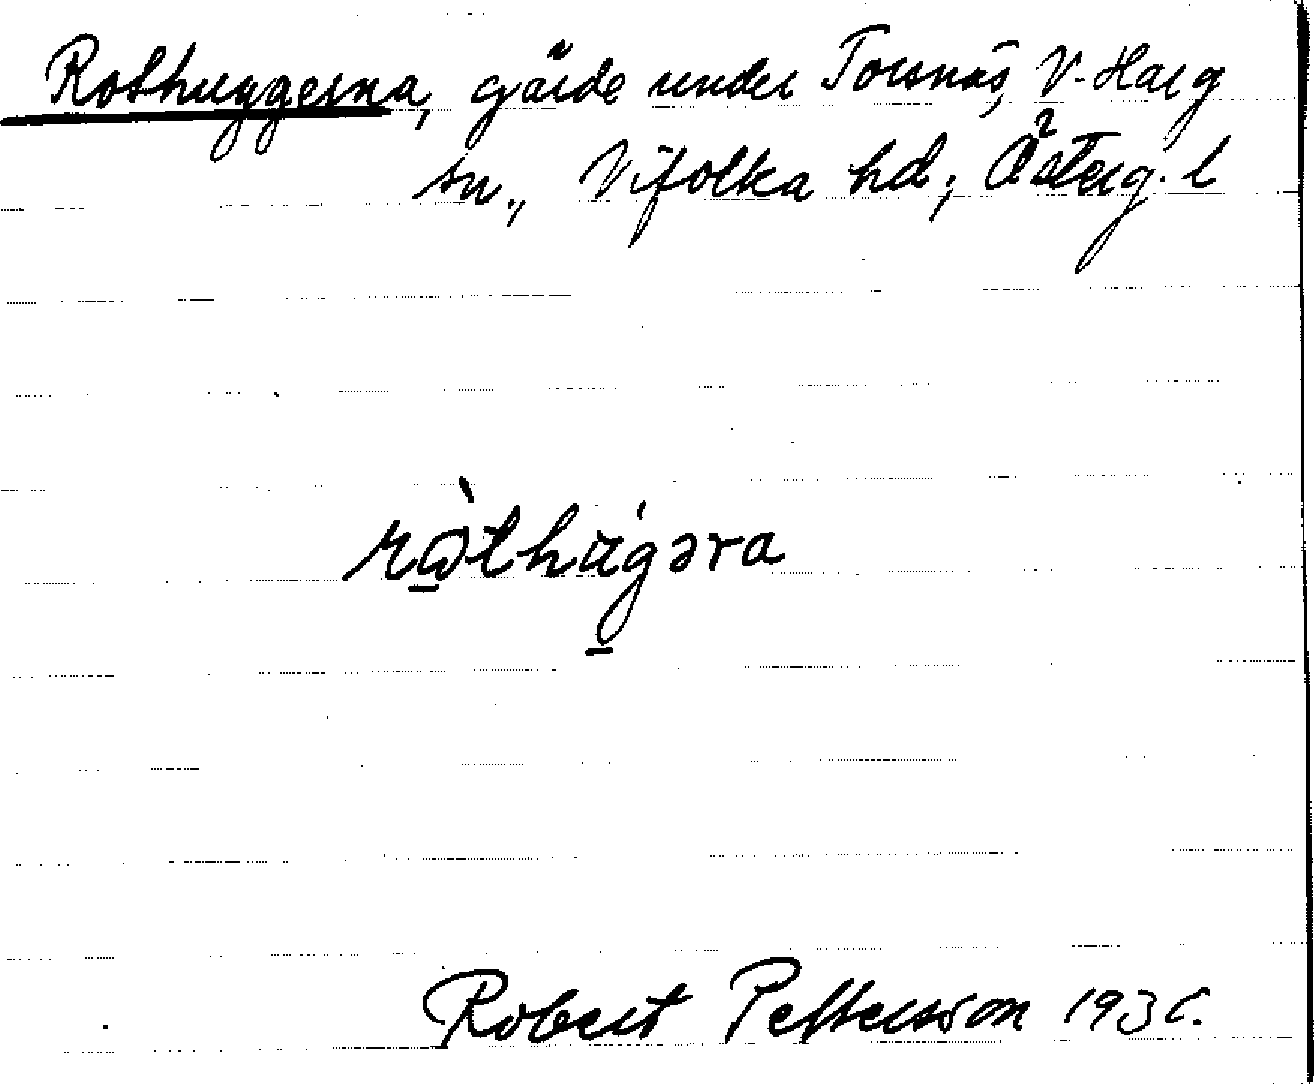 Rothuggerna, gärde under Torsnäs, V-Harg
sn., Vifolka hd; Österg. l
Robert Pettersson 1930.